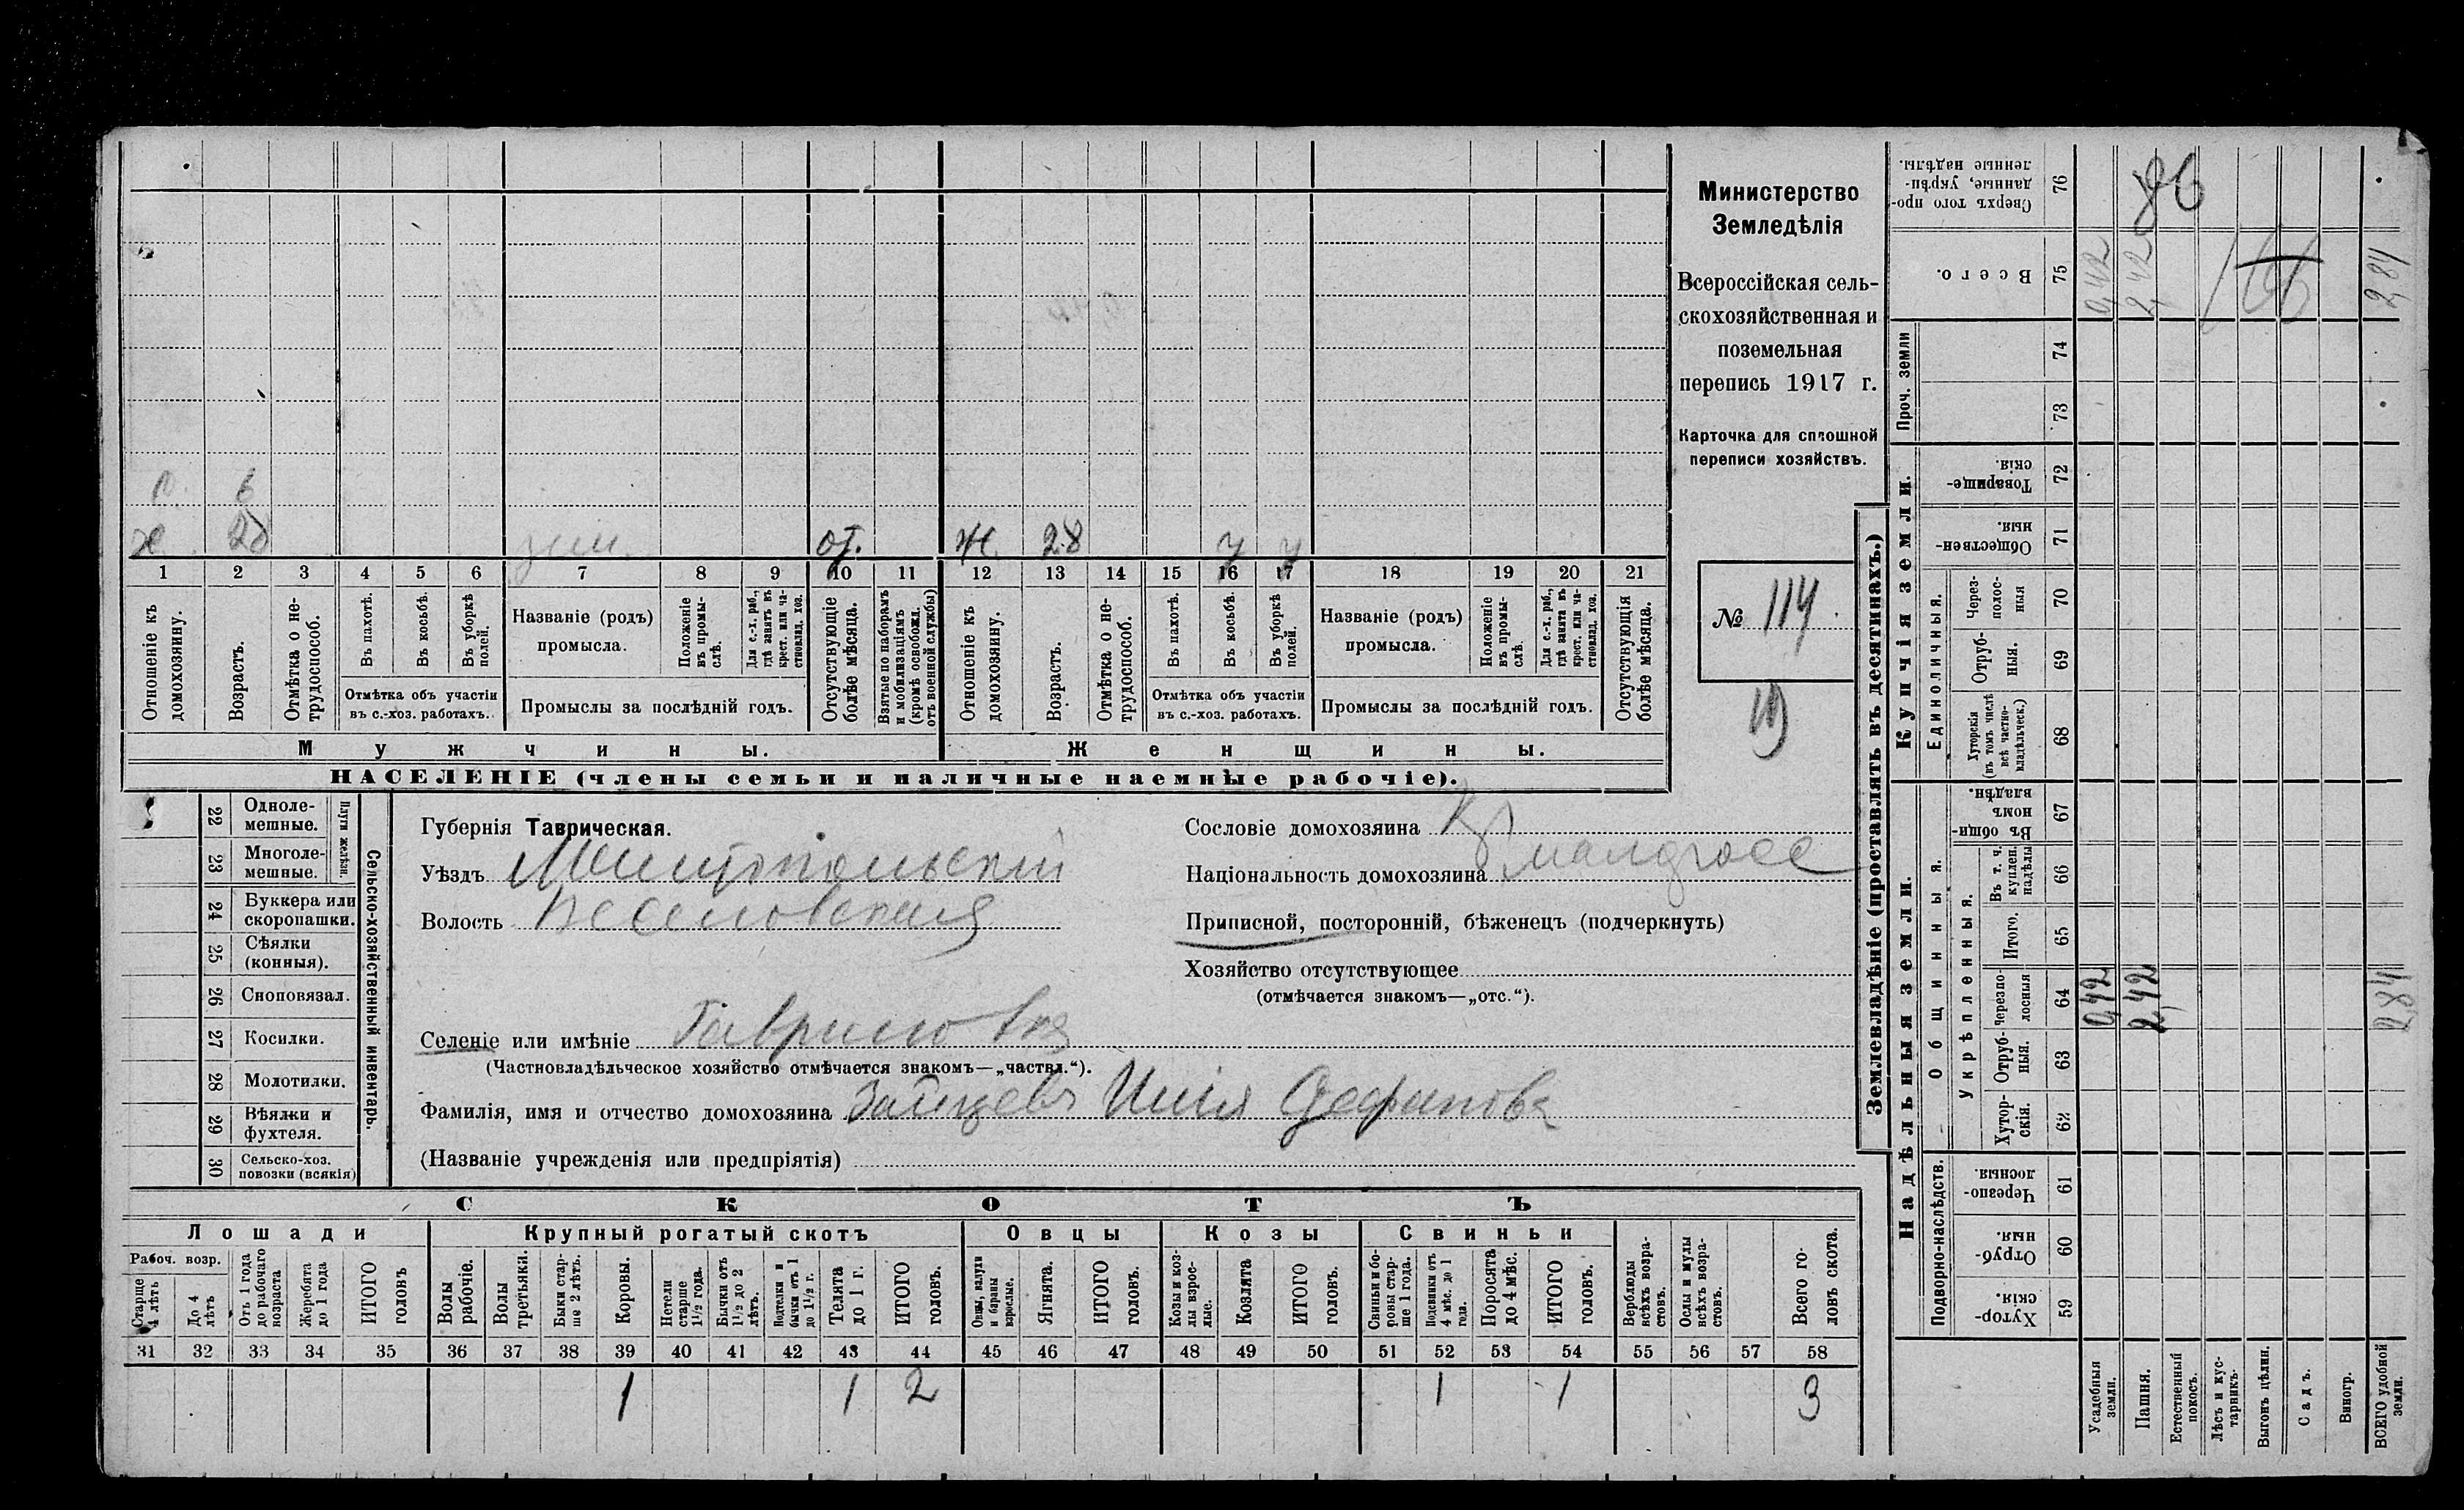 Министерство
Земледѣлія
Всероссійская сель-
скохозяйственная и
поземельная
перепись 1917 г.
Карточка для сплошной
переписи хозяйствъ.
№ 114
6
х 28 от. ж. 28 у у
1 2 3 4 5 6 7 8 9 10 11 12 13 14 15 16 17 18 19 20 21
Отношеніе къ домохозяину.
Возрастъ.
Отмѣтка о не-трудоспособ.
Въ пахотѣ.
Въ косьбѣ.
Въ уборкѣ полей.
Отмѣтка объ участіи въ с.-хоз. работахъ.
Названіе (родъ) промысла.
Положеніе въ промы-слѣ.
Для с.-х. раб., гдѣ занятъ въ крест. или ча-стновлад. хоз.
Промыслы за послѣдній годъ.
Отсутствующіе болѣе мѣсяца.
Взятые по наборамъ и мобилизаціямъ (кромѣ освобожд. отъ военной службы)
Отношеніе къ домохозяину.
Возрастъ.
Отмѣтка о не-трудоспособ.
Въ пахотѣ.
Въ косьбѣ.
Въ уборкѣ полей.
Отмѣтка объ участіи въ с.-хоз. работахъ.
Названіе (родъ) промысла.
Положеніе въ промы-слѣ.
Для с.-х. раб., гдѣ занята въ крест. или ча-стновлад. хоз.
Промыслы за послѣдній годъ.
Отсутствующія болѣе мѣсяца.
Мужчины.
Женщины.
НАСЕЛЕНІЕ (члены семьи и наличные наемные рабочіе).
22 Одноле-мешные.
23 Многоле-мешные.
Плуги желѣзн.
24 Буккера или скоропашки.
25 Сѣялки (конныя).
26 Сноповязал.
27 Косилки.
28 Молотилки.
29 Вѣялки и фухтеля.
30 Сельско-хоз. повозки (всякія)
Сельско-хозяйственный инвентарь.
Губернія Таврическая.
Уѣздъ Мелитопольскій
Волость Веселовская
Сословіе домохозяина Кр
Національность домохозяина малоросс
Приписной, посторонній, бѣженецъ (подчеркнуть)
Хозяйство отсутствующее
(отмѣчается знакомъ—„отс.“).
Селеніе или имѣніе Гавриловка
(Частновладѣльческое хозяйство отмѣчается знакомъ—„частвл.“).
Фамилія, имя и отчество домохозяина Зайцевъ Илія
(Названіе учрежденія или предпріятія)
СКОТЪ
Лошади
Крупный рогатый скотъ
Овцы
Козы
Свиньи
Рабоч. возр.
Старше 4 лѣтъ
До 4 лѣтъ
Отъ 1 года до рабочаго возраста
Жеребята до 1 года
ИТОГО головъ
Волы рабочіе.
Волы третьяки.
Быки стар-ше 2 лѣтъ.
Коровы.
Нетели старше 1½ года.
Бычки отъ 1½ до 2 лѣтъ.
Подтелки и бычки отъ 1 до 1½ г.
Телята до 1 г.
ИТОГО головъ.
Овцы, валухи и бараны взрослые.
Ягнята.
ИТОГО головъ.
Козы и коз-лы взрос-лые.
Козлята
ИТОГО головъ.
Свиньи и бо-ровы стар-ше 1 года.
Подсвинки отъ 4 мѣс. до 1 года.
Поросята до 4 мѣс.
ИТОГО головъ.
Верблюды всѣхъ возра-стовъ.
Ослы и мулы всѣхъ возра-стовъ.
Всего го-ловъ скота.
31 32 33 34 35 36 37 38 39 40 41 42 43 44 45 46 47 48 49 50 51 52 53 54 55 56 57 58
1 1 2 1 1 3
Землевладѣніе (проставлять въ десятинахъ.)
Надѣльныя земли.
Купчія земли.
Проч. земли
Подворно-наслѣдств.
Общинныя.
Укрѣпленныя.
Единоличныя.
Сверхъ того про-данные, укрѣп-ленные надѣлы. 76
Всего. 75
74
73
Товарище-скія. 72
Обществен-ныя. 71
Через-полос-ныя 70
Отруб-ныя. 69
Хуторскія (въ томъ числѣ всѣ частно-владѣльческ.) 68
Въ общин-номъ владѣн. 67
Въ т. ч. куплен. надѣлы 66
Итого. 65
Черезпо-лосныя 64
Отруб-ныя. 63
Хутор-скія. 62
Черезпо-лосныя. 61
Отруб-ныя. 60
Хутор-скія. 59
86
0,42 2,42 2,84
0,42 2,42 2,84
Усадебныя земли.
Пашня.
Естественный покосъ.
Лѣсъ и кус-тарникъ.
Выгонъ цѣлин.
Садъ.
Виногр.
ВСЕГО удобной земли.